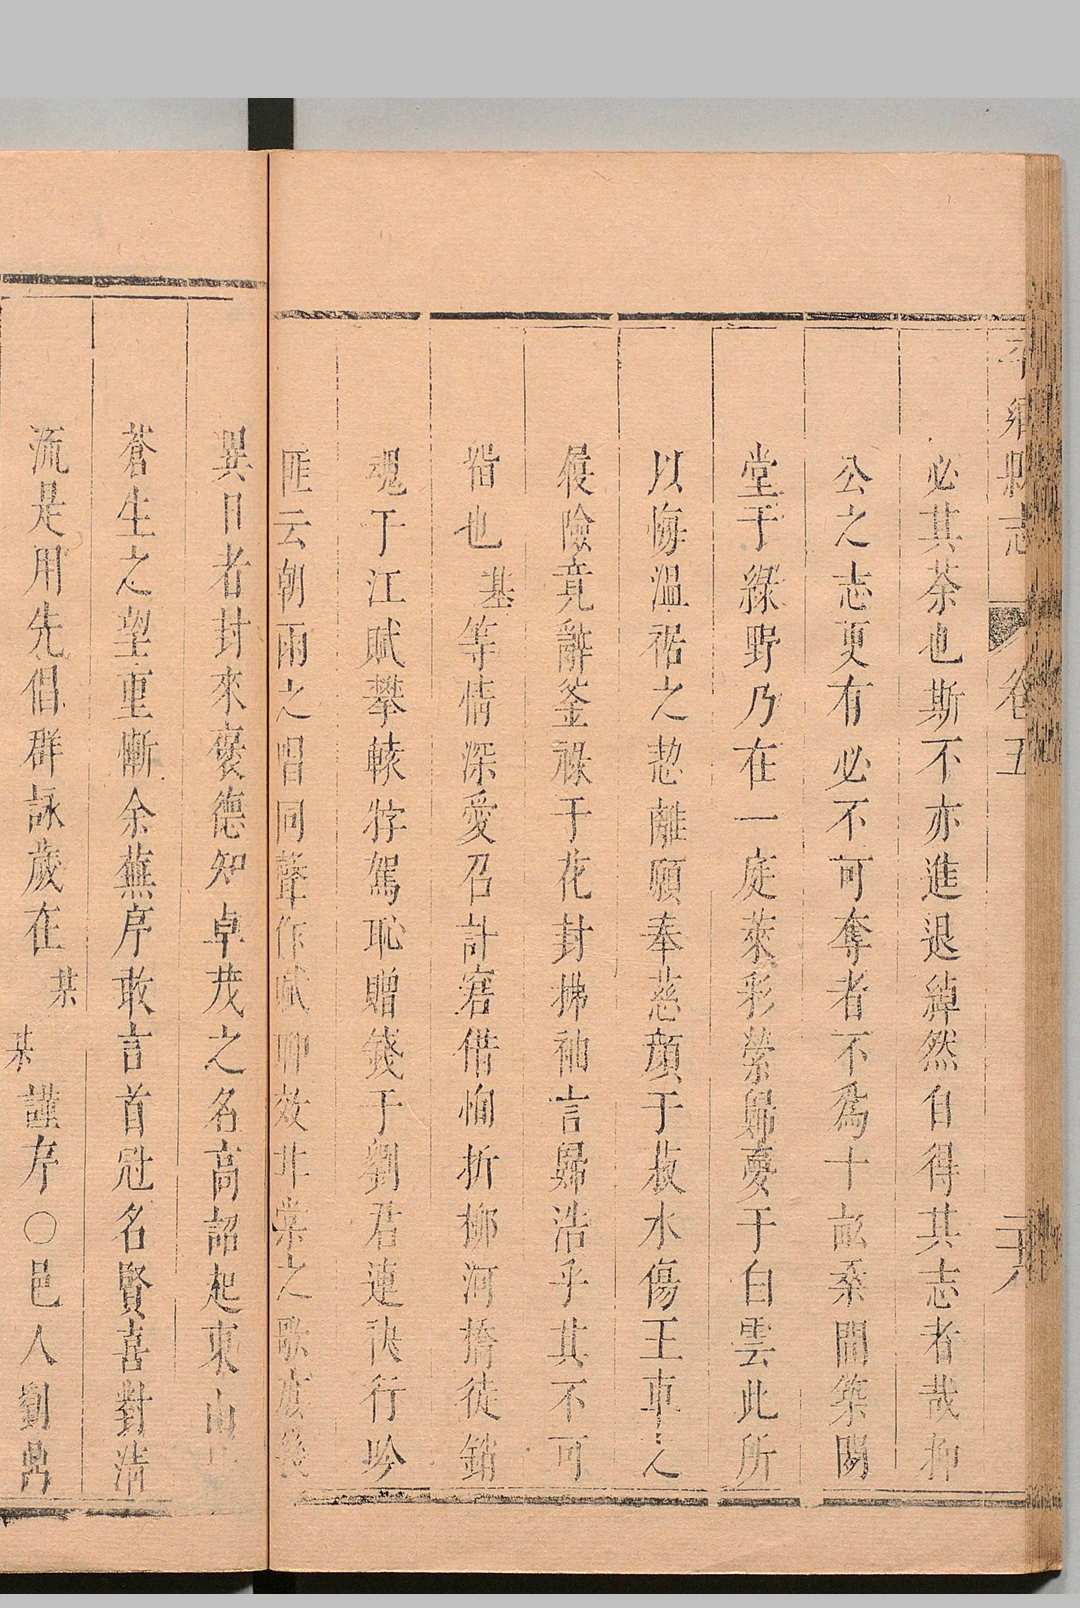 平鄉縣志 卷五 二十六
必其荼也斯不亦進退綽然自得其志者哉抑
公之志更有必不可奪者不爲十畝桑間築閒
堂于綠野乃在一庭萊彩縈歸夢于白雲此所
以悔溫裾之懃離願奉慈顏于菽水傷王車之
履險竟辭釜祿于花封拂袖言歸浩乎其不可
畱也基等情深愛召計窘借恂折柳河橋徒銷
魂于江賦攀轅牸駕恥贈錢于劉君連袂行吟
匪云朝雨之唱同聲作賦聊效甘棠之歌庶幾
異日者封來褒德知卓茂之名高詔起東山
蒼生之望重慚余蕪序敢言首冠名賢喜對清
流是用先倡群詠歲在某某謹序○邑人劉